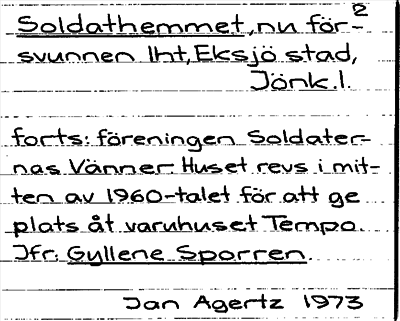 2
Soldathemmet, nu för-
svunnen lht, Eksjö stad,
Jönk.l.
forts: föreningen Soldater-
nas Vänner. Huset revs i mit-
ten av 1960-talet för att ge
plats åt varuhuset Tempo.
Jfr: Gyllene Sporren.
Jan Agertz 1973